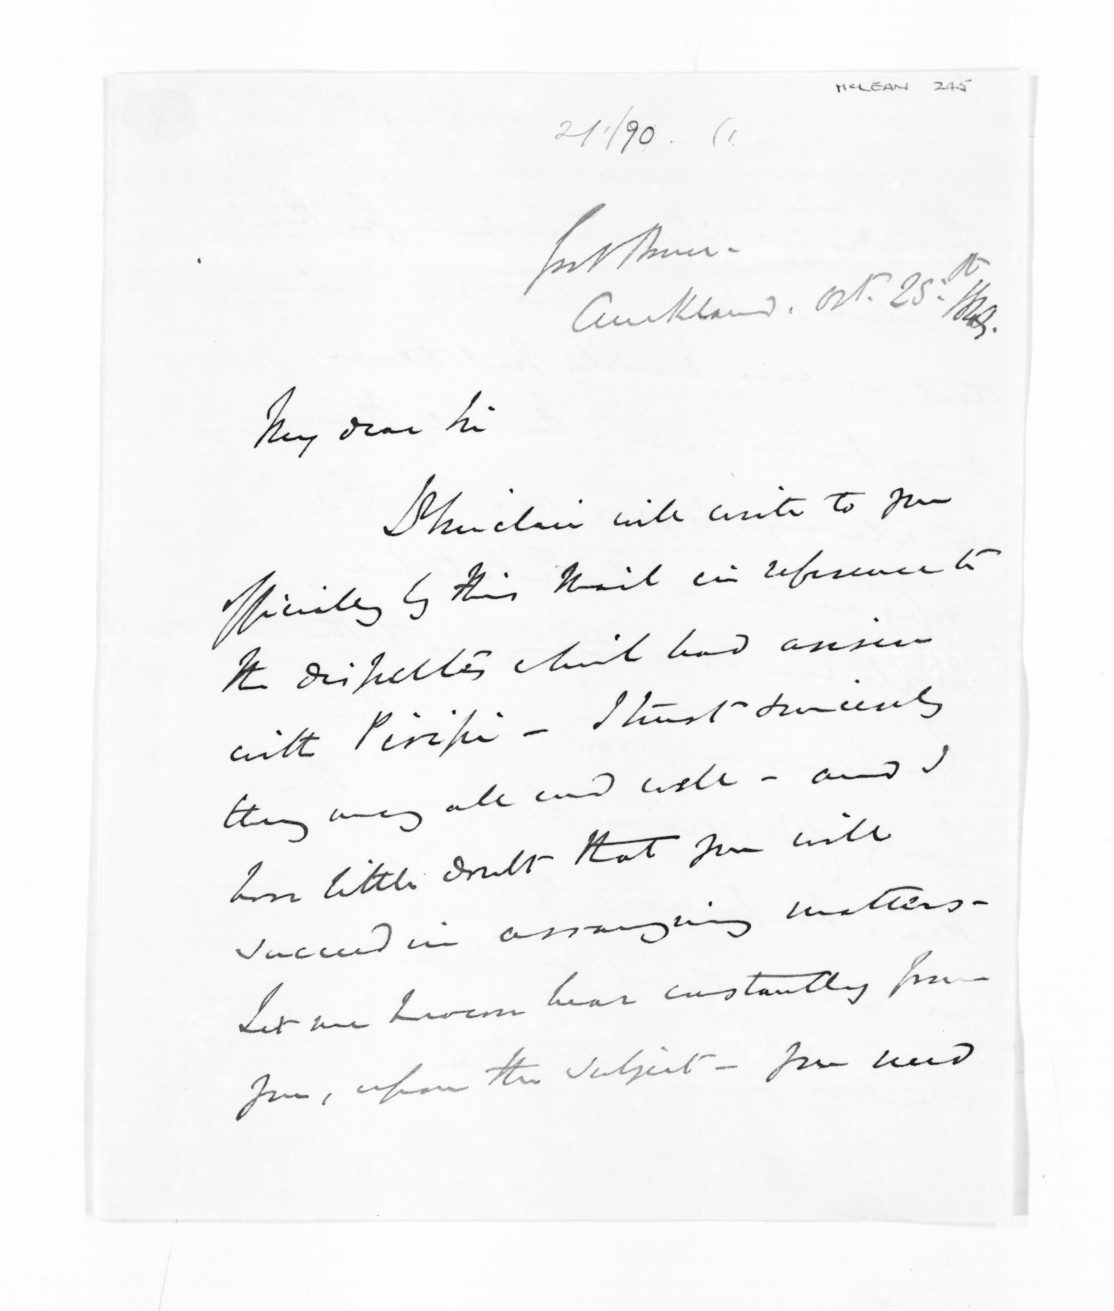 McLEAN 245
21/90. (1.
Govt House -
Auckland. Oct. 25th
My dear Sir
Dr Sinclair will write to you
officially by this Mail in reference to
the disputes which had arisen
with Piripi - I trust sincerely
they may all end well - and I
have little doubt that you will
succeed in arranging matters -
Let me however hear constantly from
you, upon this subject - you need